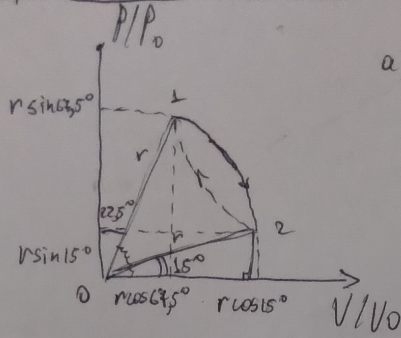 P/P₀
a
r sin67,5°
1
r
22,5°
2
r
r sin15°
15°
0
r cos67,5°
r cos15°
V/V₀